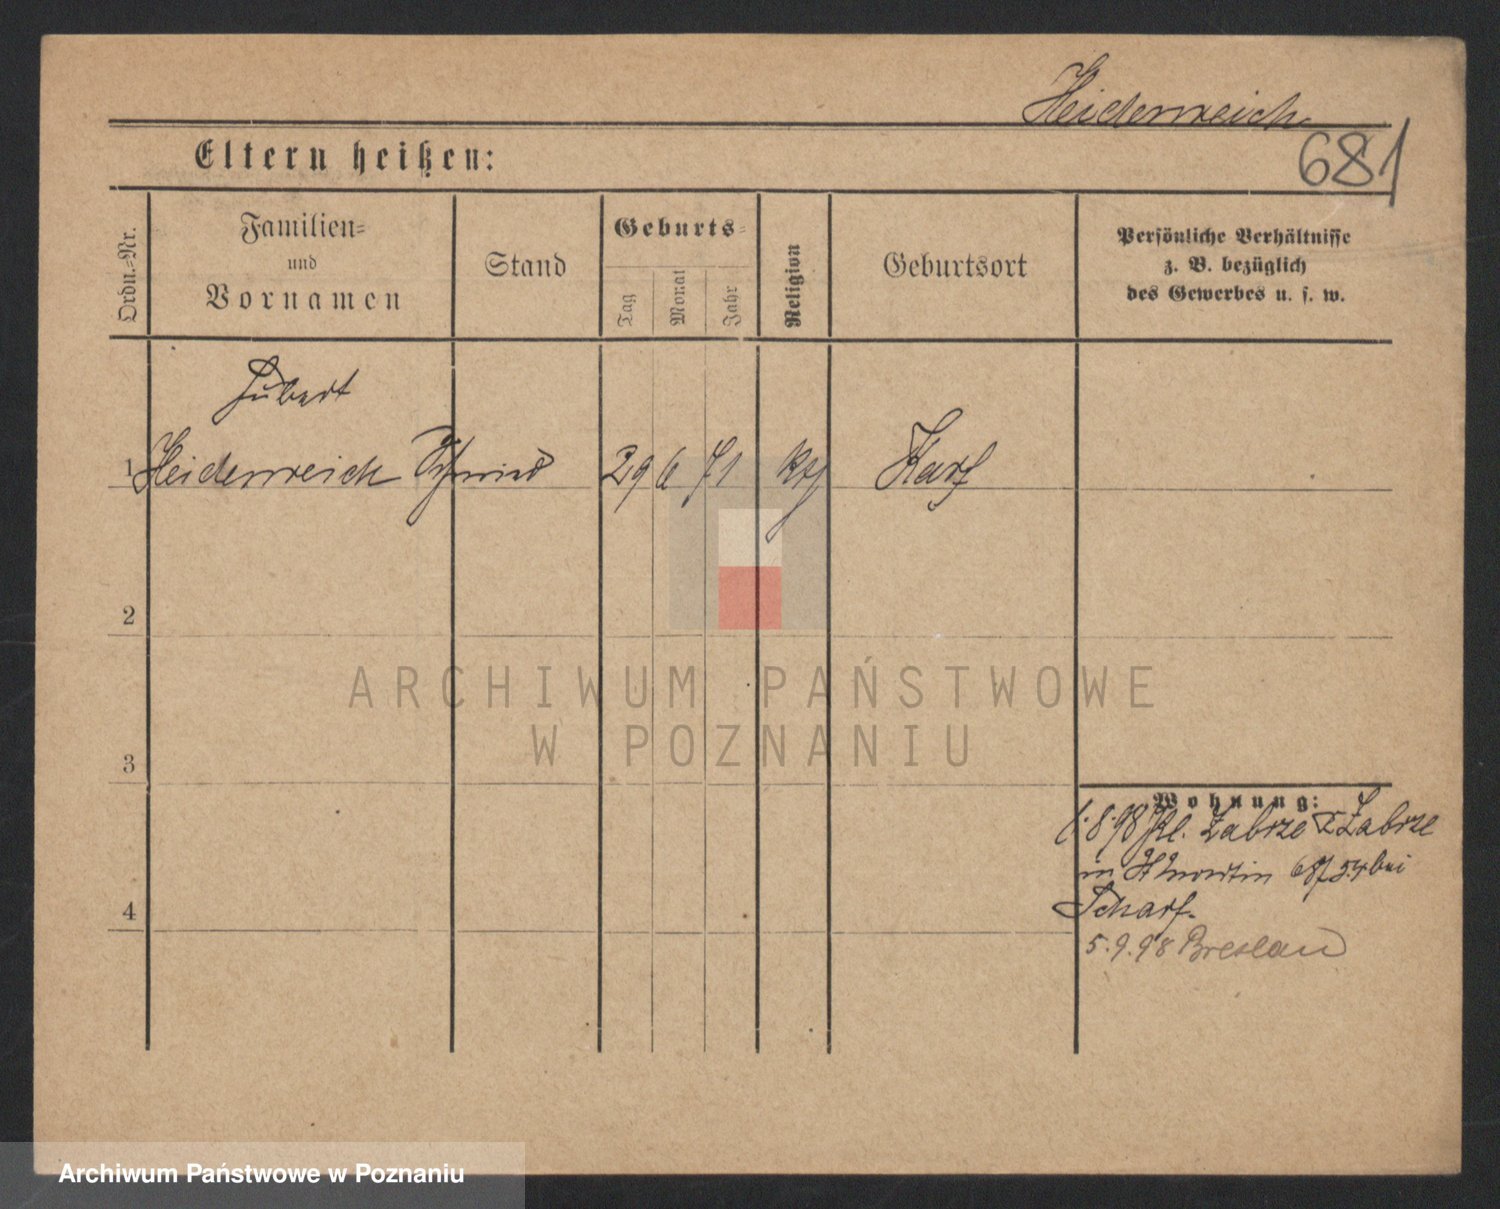 Heidenreich
681
Eltern heißen:
Ordn.-Nr.
Familien-
und
Vornamen
Stand
Geburts-
Tag
Monat
Jahr
Religion
Geburtsort
Persönliche Verhältnisse
z. B. bezüglich
des Gewerbes u. s. w.
Hubert
1 Heidenreich Schmied 29 6 71 kth Karf
2
ARCHIWUM PAŃSTWOWE
W POZNANIU
3
Wohnung:
1.8.98 Kl. Zabrze Zabrze
in St Martin 54 bei
Scharf.
4
5.9.98 Breslau
Archiwum Państwowe w Poznaniu